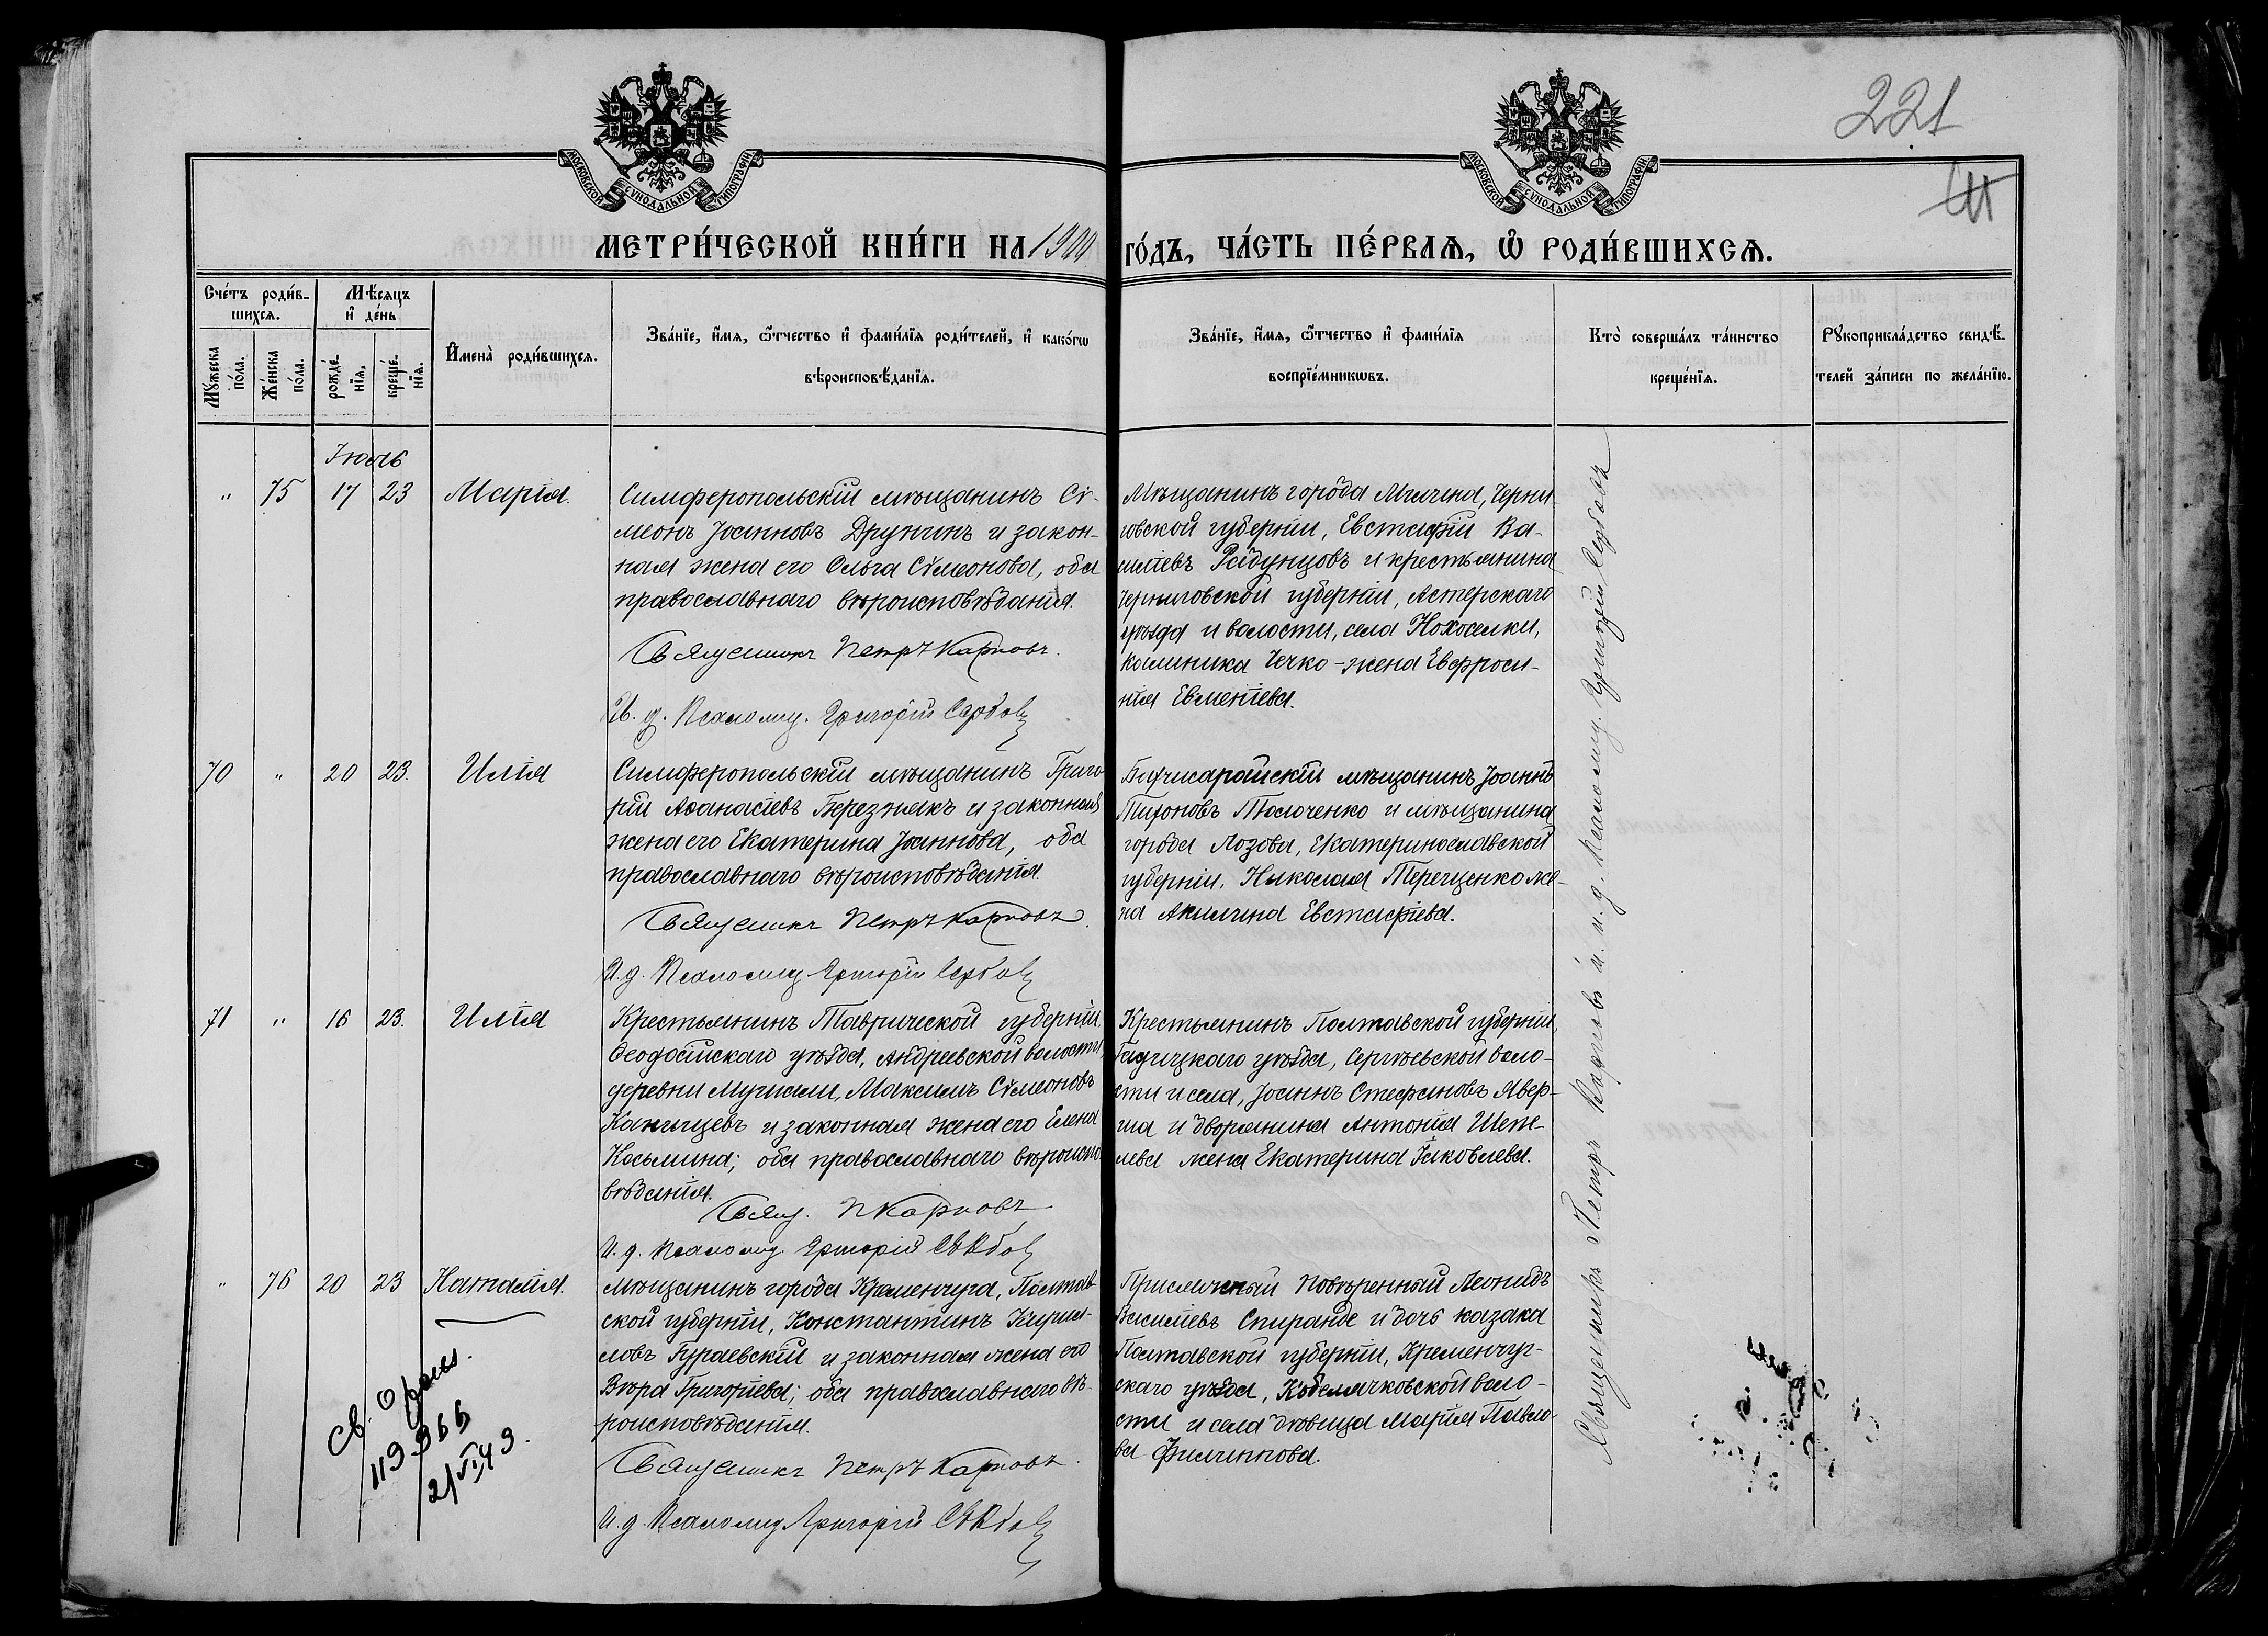 221
МОСКОВСКОЙ СУНОДАЛЬНОЙ ТИПОГРАФІИ
МОСКОВСКОЙ СУНОДАЛЬНОЙ ТИПОГРАФІИ
МЕТРИ́ЧЕСКОЙ КНИ́ГИ НА 1900 ГО́ДЪ, ЧА́СТЬ ПЕ́РВАѦ, Ѡ РОДИ́ВШИХСѦ.
Сче́тъ роди́в-
шихсѧ.
Мꙋжеска
по́ла.
Же́нска
по́ла.
Мѣ́сѧцъ
и҆ де́нь
рожде́-
нїѧ.
креще́-
нїѧ.
И҆мена̀ роди́вшихсѧ.
Зва́нїе, и҆́мѧ, ѻ҆́тчество и҆ фами́лїѧ роди́телей, и҆ како́гѡ
вѣроисповѣ́данїѧ.
Зва́нїе, и҆́мѧ, ѻ҆́тчество и҆ фами́лїѧ
воспрїе́мникѡвъ.
Кто̀ соверша́лъ та́инство
креще́нїѧ.
Рꙋкоприкла́дство свидѣ́-
телей за́писи по жела́нїю.
Іюль
" 75 17 23 Марія.
Симферопольскій мѣщанинъ Сѵ-
меонъ Іоанновъ Дружинъ и закон-
ная жена его Ольга Сѵмеонова, оба
православнаго вѣроисповѣданія.
Священникъ Петръ Карповъ.
И. д. Псаломщ. Григорій Сербовъ
Мѣщанинъ города Мглина, Черни-
говской губерніи, Евстафій Ва-
силіевъ Радунцовъ и крестьянина
Черниговской губерніи, Астерскаго
уѣзда и волости, села Новоселки,
Калиника Чечко - жена Евфроси-
нія Евменіева.
70 " 20 23. Илія
Симферопольскій мѣщанинъ Григо-
рій Аѳанасіевъ Березнякъ и законная
жена его Екатерина Іоаннова, оба
православнаго вѣроисповѣданія.
Священникъ Петръ Карповъ.
И. д. Псаломщ. Григорій Сербовъ
Бахчисарайскій мѣщанинъ Іоаннъ
Тихоновъ Толоченко и мѣщанина
города Лозова, Екатеринославской
губерніи, Николая Терещенко же-
на Акилина Евстафіева.
71 " 16 23. Илія
Крестьянинъ Таврической губерніи,
Ѳеодосійскаго уѣзда, Андреевской волости,
деревни Максимъ Сѵмеоновъ
Канищевъ и законная жена его Елена
Косьмина; оба православнаго вѣроиспо-
вѣданія.
Свящ. П Карповъ
И. д. Псаломщ. Григорій Сербовъ
Крестьянинъ Полтавской губерніи,
Гадячскаго уѣзда, Сергѣевской воло-
сти и села, Іоаннъ Стефановъ Явер-
ша и дворянина Антонія Шепе-
лева жена Екатерина Іаковлева.
" 76 20 23 Наталія.
Мѣщанинъ города Кременчуга, Полтав-
ской губерніи, Константинъ Кирил-
ловъ Гураевскій и законная жена его
Вѣра Григоріева; оба православнаго вѣ-
роисповѣданія.
Священникъ Петръ Карповъ.
И. д. Псаломщ Григорій Сербовъ
Присяжный Повѣренный Леонидъ
Василіевъ Спиранде и дочь казака
Полтавской губерніи, Кременчуг-
скаго уѣзда, Кобелячковской воло-
сти и села дѣвица Марія Павло-
ва Филиппова.
Священникъ Петръ Карповъ и и. д. Псаломщ. Григорій Сербовъ
св.
119366
21/VI 43.